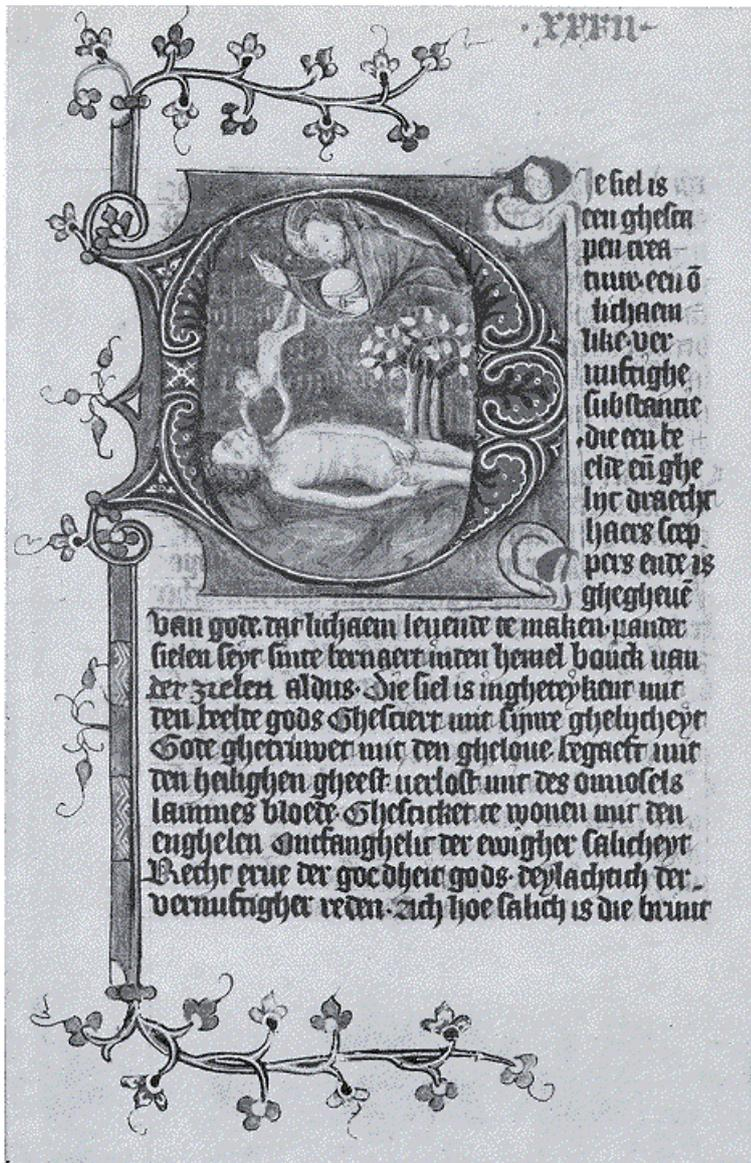 ·xxxii·
Die siel is
een ghesca
pen crea
tuur·een ō
lichaem
like·ver
nuftighe
substantie
·die een be
elde eñ ghe
lijc draecht
haers scep
pers ende is
ghegheuē
van gode·dat lichaem leuende te maken·vander
sielen seyt sinte bernaert inden hemel bouck van
der zielen aldus·Die siel is ingheteẏkent mit
den beelde gods Ghesciert mit sijnre ghelijcheyt
Gode ghetruwet mit den gheloue begaeft mit
den heilighen gheest·verlost mit des onnosels
lammes bloede·Ghescicket te wonen mit den
enghelen Ontfanghelic der ewigher salicheyt
Recht erue der godheit gods·deylachtich der
vernuftigher reden·Ach hoe salich is die bruut